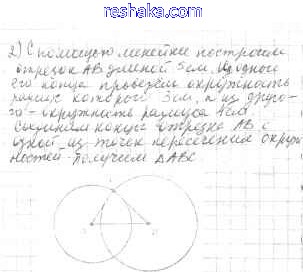 reshaka.com
2) С помощью линейки построим
отрезок АВ длиной 5см. Из одного
его конца проведём окружность
радиус которой 3см, а из друго-
го - окружность радиуса 4см.
Соединим концы отрезка АВ с
одной из точек пересечения окруж-
ностей - получим ΔАВС